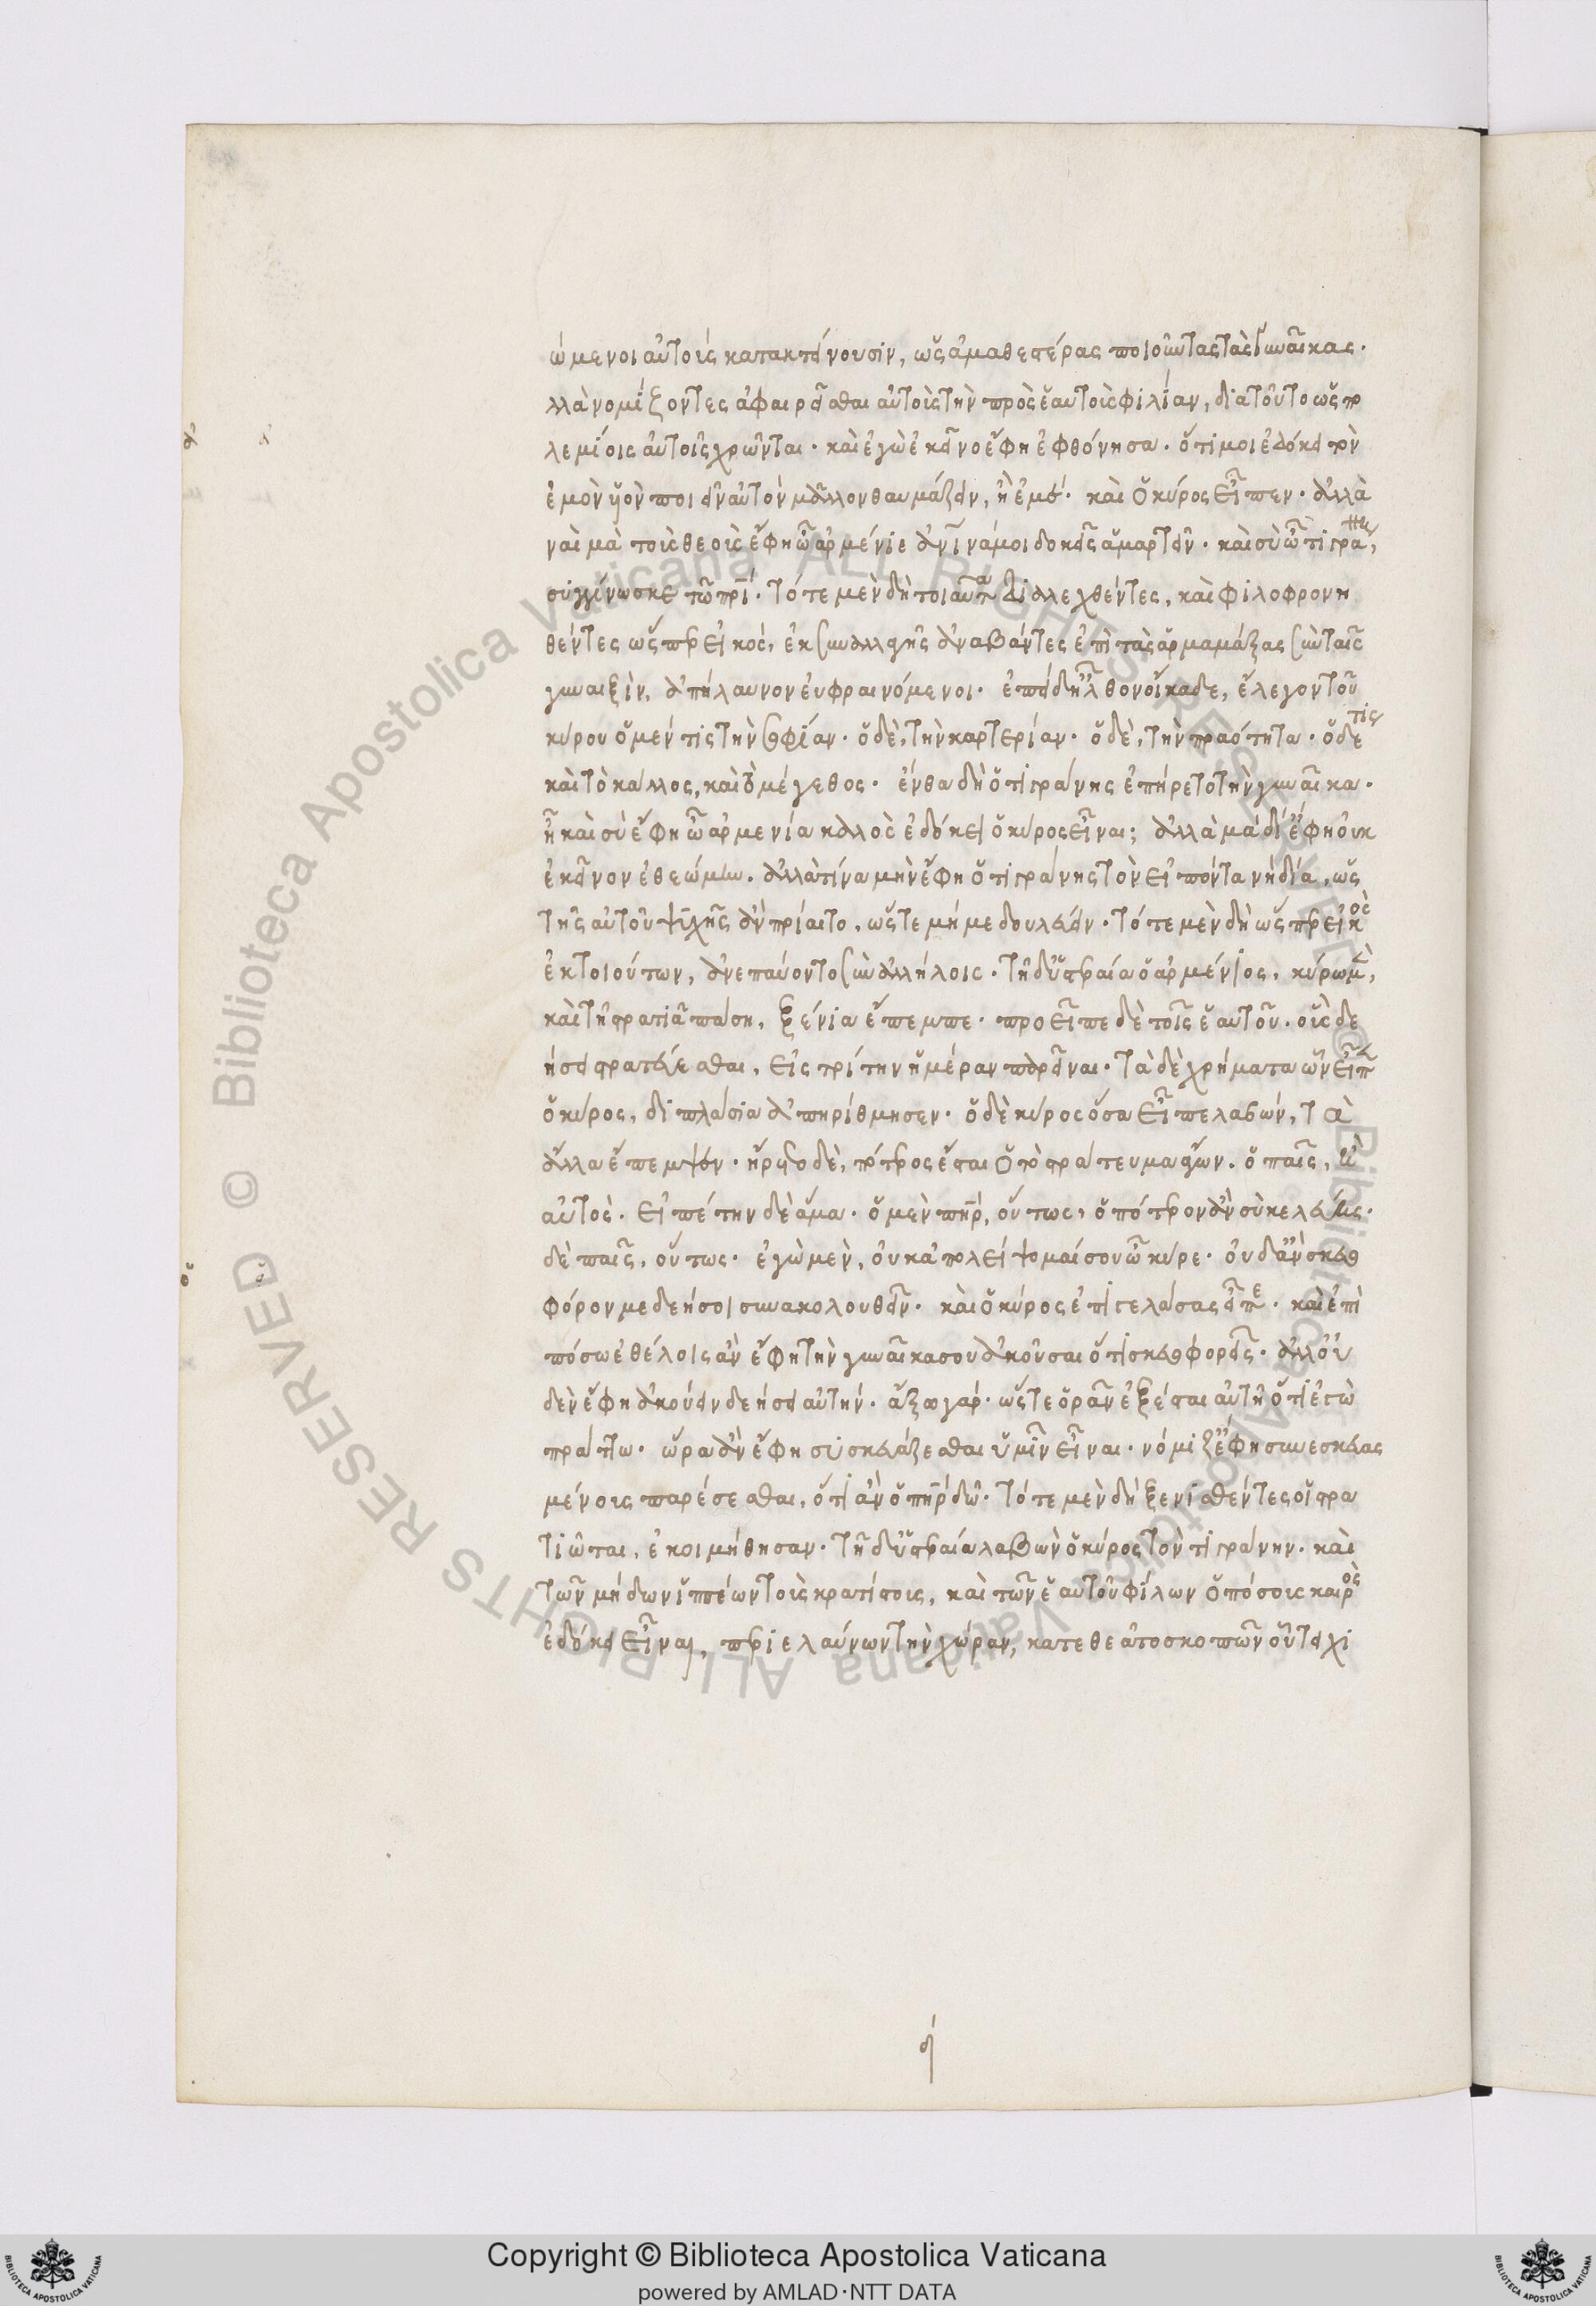 ώμενοι αὐτοὺς κατακτείνουσιν, ὡς ἀμαθεστέρας ποιοῦντας τὰς γυναῖκας.
λλὰ νομίζοντες ἀφαιρεῖσθαι αὐτοὺς τὴν πρὸς ἑαυτοὺς φιλίαν, διὰ τοῦτο ὡς πο
λεμίοις αὐτοῖς χρῶνται. καὶ ἐγὼ ἐκείνο ἔφη ἐφθόνησα. ὅτι μοι ἐδόκει τὸν
ἐμὸν υἱὸν ποιεῖν αὐτὸν μᾶλλον θαυμάζειν, ἢ ἐμέ. καὶ ὁ κύρος εἶπεν. ἀλλὰ
ναὶ μὰ τοὺς θεοὺς ἔφη ὦ ἀρμένιε ἀνθρώπινά μοι δοκεῖς ἁμαρτεῖν. καὶ σὺ ὦ τιγράνη,
συγγίνωσκε τῷ πρί. τότε μὲν δὴ τοιαῦτα διαλεχθέντες, καὶ φιλοφρονη
θέντες ὥσπερ εἰκός, ἐκ συναλλαγῆς ἀναβάντες ἐπὶ τὰς ἁρμαμάξας σὺν ταῖς
γυναιξίν, ἀπήλαυνον εὐφραινόμενοι. ἐπεὶ δ' ἦλθον οἴκαδε, ἔλεγον τοῦ
κύρου ὁ μέν τις τὴν σοφίαν. ὁ δὲ, τὴν καρτερίαν. ὁ δὲ, τὴν πραότητα. ὁ δέ τις
καὶ τὸ κάλλος, καὶ τὸ μέγεθος. ἔνθα δὴ ὁ τιγράνης ἐπήρετο τὴν γυναῖκα.
ἦ καὶ σὺ ἔφη ὦ ἀρμενία καλὸς ἐδόκει ὁ κύρος εἶναι; ἀλλὰ μὰ δί' ἔφη οὐκ
ἐκεῖνον ἐθεώμην. ἀλλὰ τίνα μὴν ἔφη ὁ τιγράνης τὸν εἰπόντα νὴ δία, ὡς
τῆς αὐτοῦ ψυχῆς ἂν πρίαιτο, ὥστε μή με δουλεύειν. τότε μὲν δὴ ὥσπερ εἰκὸς
ἐκ τοιούτων, ἀνεπαύοντο σὺν ἀλλήλοις. τῇ δ' ὑστεραίᾳ ὁ ἀρμένιος, κύρῳ μὲν,
καὶ τῇ στρατιᾷ πάσῃ, ξένια ἔπεμπε. προεῖπε δὲ τοῖς ἑαυτοῦ. οὓς δε
ήσει στρατεύεσθαι, εἰς τρίτην ἡμέραν παρεῖναι. τὰ δὲ χρήματα ὧν εἶπεν
ὁ κύρος, διπλάσια ἀπηρίθμησεν. ὁ δὲ κύρος ὅσα εἶπε λαβών, τὰ
ἄλλα ἔπεμψεν. ἤρετο δὲ, πότερος ἔσται ὁ τὸ στράτευμα ἄγων. ὁ παῖς, ἢ
αὐτὸς. εἰπέτην δὲ ἅμα. ὁ μὲν πηρ, οὕτως, ὁπότερον ἂν σὺ κελεύῃς.
δὲ παῖς, οὕτως. ἐγὼ μὲν, οὐκ ἀπολείψομαί σου ὦ κύρε. οὐδ' ἂν σκευο
φόρον με δεήσοι συνακολουθεῖν. καὶ ὁ κύρος ἐπιγελάσας εἶπε. καὶ ἐπὶ
πόσῳ ἐθέλοις ἂν ἔφη τὴν γυναῖκα σου ἀκοῦσαι ὅτι σκευοφορεῖς. ἀλλ' οὐ
δὲν ἔφη ἀκούειν δεήσει αὐτήν. ἄξω γάρ. ὥστε ὁρᾶν ἐξέσται αὐτῇ ὅτι ἐγὼ
πράττω. ὥρα ἂν ἔφη συσκευάζεσθαι ὑμῖν εἶναι. νόμιζ' ἔφη συνεσκευας
μένοις παρέσεσθαι, ὅτι ἂν ὁ πηρ δῷ. τότε μὲν δὴ ξενισθέντες οἱ στρα
τιῶται, ἐκοιμήθησαν. τῇ δ' ὑστεραίᾳ λαβὼν ὁ κύρος τὸν τιγράνην. καὶ
τῶν μήδων ἱππέων τοὺς κρατίστους, καὶ τῶν ἑαυτοῦ φίλων ὁπόσους καιρὸς
ἐδόκει εἶναι, περιελαύνων τὴν χώραν, κατεθεᾶτο σκοπῶν οὗ τειχι